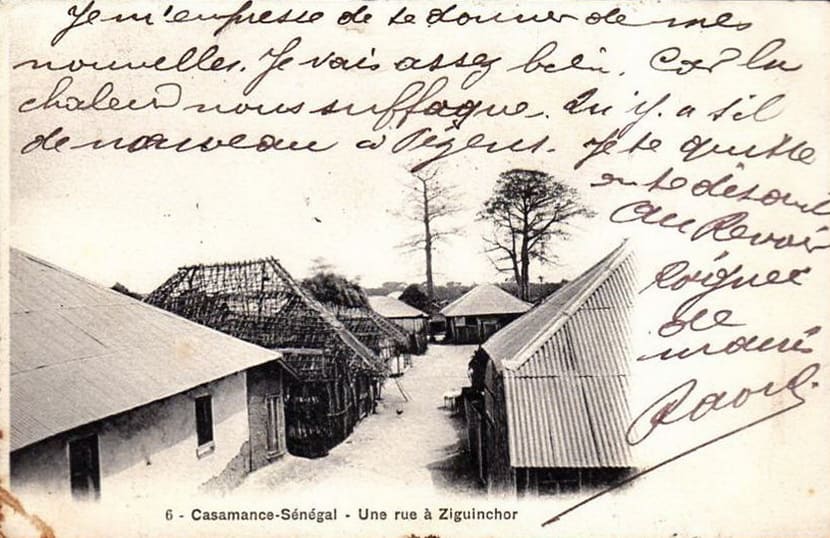 Je m'empresse de te donner de mes
nouvelles. Je vais assez bein. Car la
chaleur nous suffoque. Qu'y a t il
de nouveau a Pezens. Je te quitte
en te disant
au Revoir
Poignee
de
main
Raoul.
6 - Casamance-Sénégal - Une rue à Ziguinchor